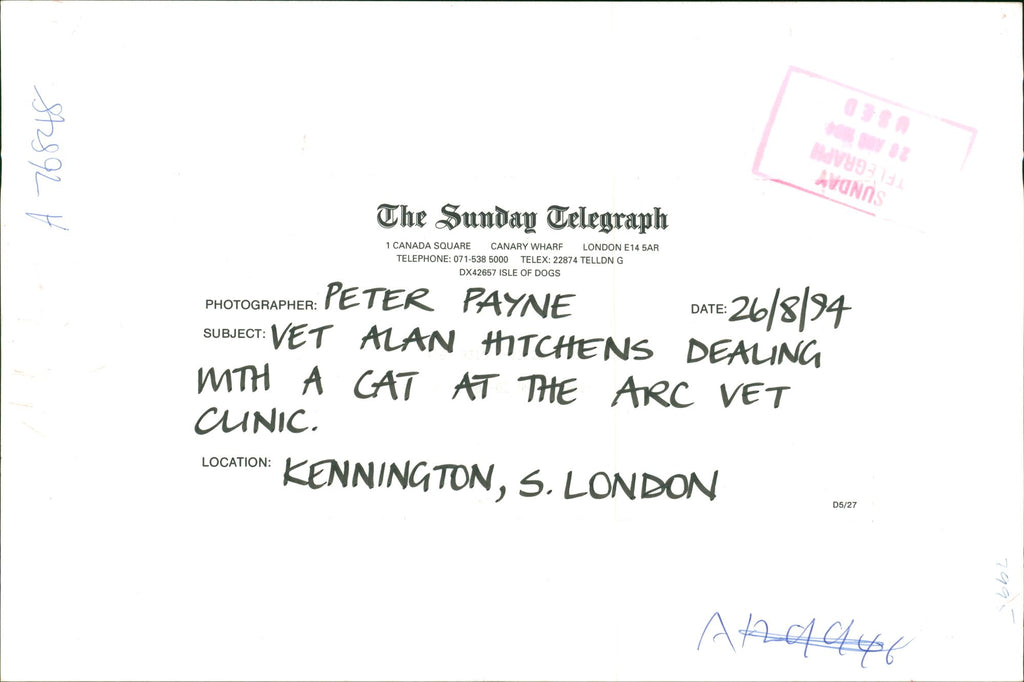 A 76848
SUNDAY
TELEGRAPH
28 AUG 1994
USED
The Sunday Telegraph
1 CANADA SQUARE CANARY WHARF LONDON E14 5AR
TELEPHONE: 071-538 5000 TELEX: 22874 TELLDN G
DX42657 ISLE OF DOGS
PHOTOGRAPHER: PETER PAYNE DATE: 26/8/94
SUBJECT: VET ALAN HITCHENS DEALING
WITH A CAT AT THE ARC VET
CLINIC.
LOCATION: KENNINGTON, S. LONDON
D5/27